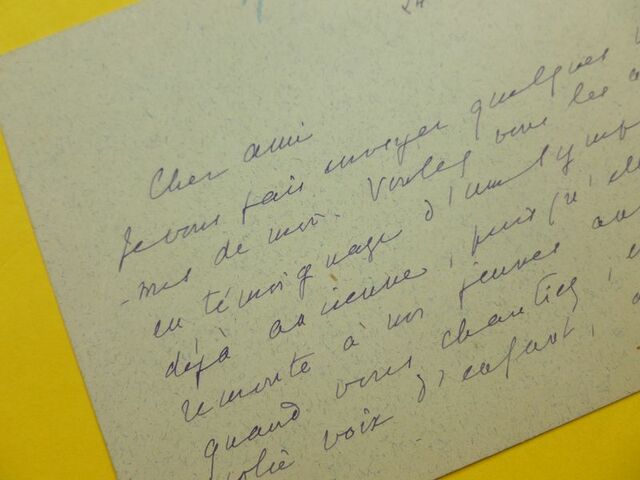 24
Cher ami
Je vous fais envoyer quelques
-mes de moi. Voulez vous les
en témoignage d'une symp
déjà ancienne, puisqu'elle
remonte à nos jeunes an
quand vous chantiez,
jolie voix d'enfant,